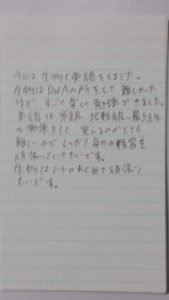 今日は生物と英語をしました。
生物はDNAの所をして難しかった
けど、すごく楽しく勉強できました。
英語は原級、比較級、最上級
の勉強をして、覚えるのがとても
難しいのでしっかり毎日の練習を
頑張っていきたいです。
生物はノートのまとめを頑張り
たいです。